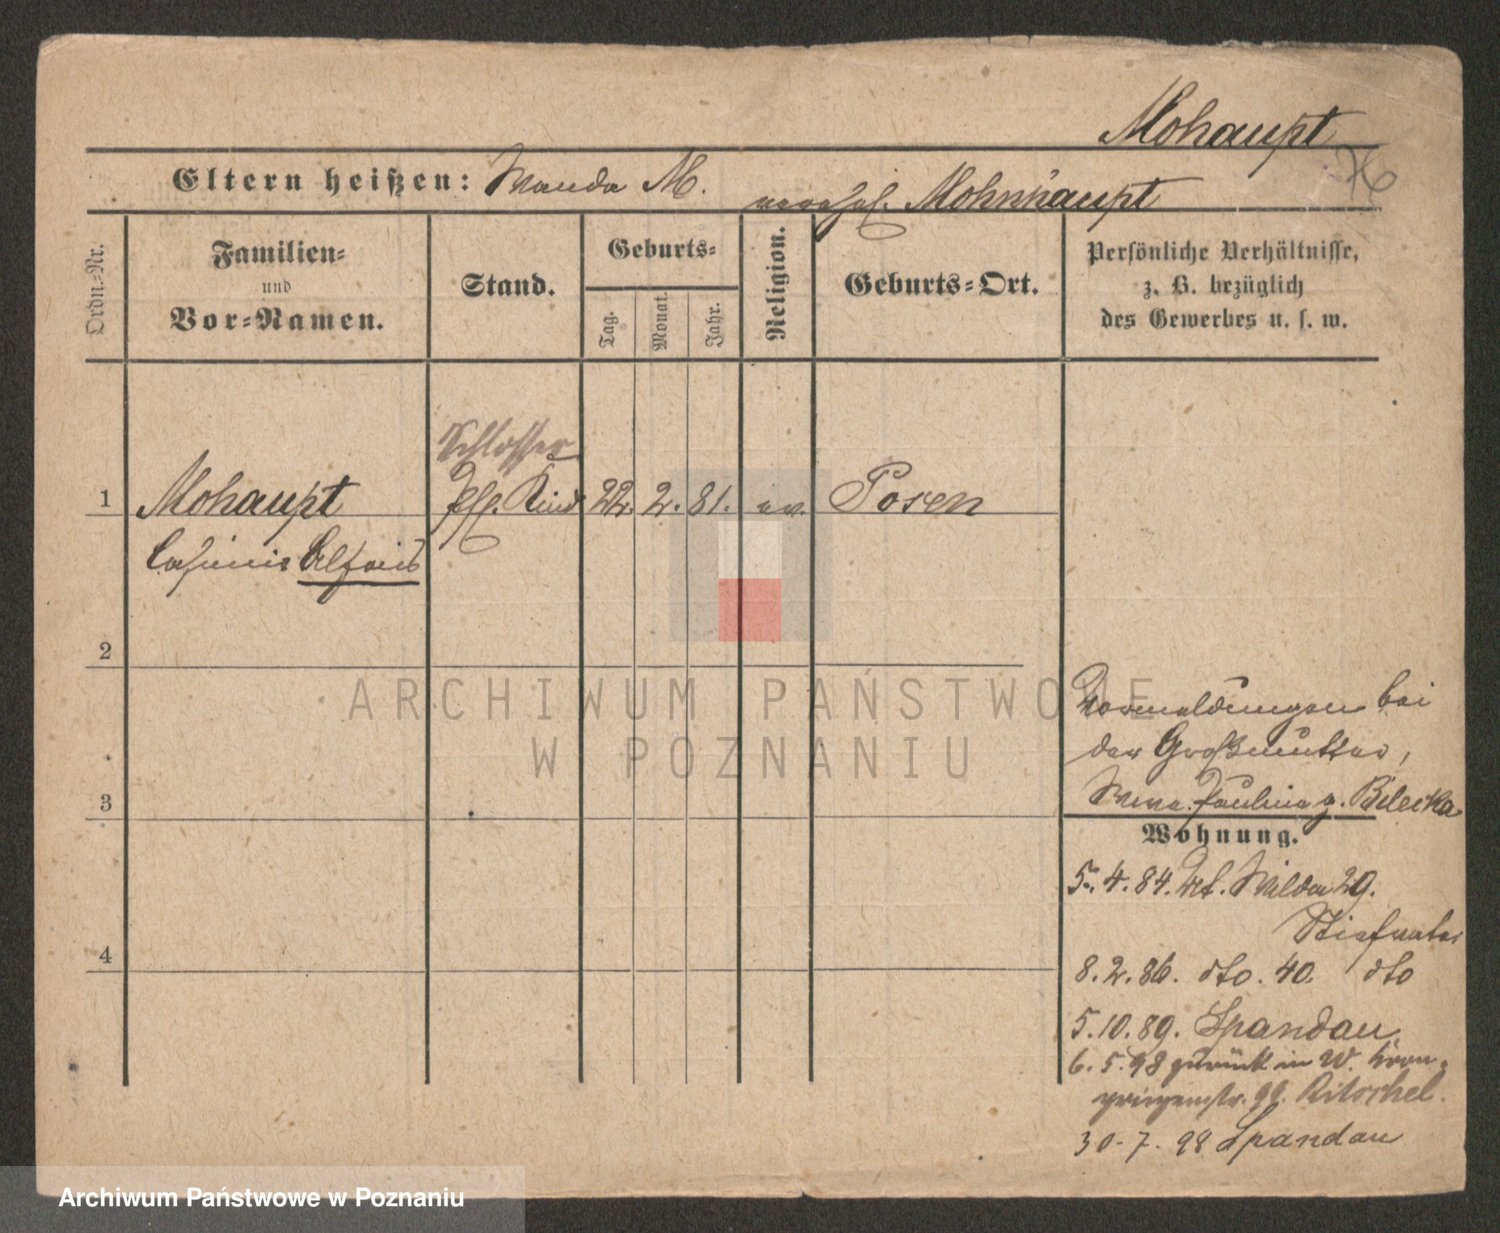 Mohaupt
76
Eltern heißen: Wanda M. verehel. Mohnhaupt
Ordn.-Nr.
Familien-
und
Vor-Namen.
Stand.
Geburts-
Tag.
Monat.
Jahr.
Religion.
Geburts-Ort.
Persönliche Verhältnisse,
z. B. bezüglich
des Gewerbes u. s. w.
Schlosser
1 Mohaupt Kind 22. 2. 81. ev. Posen
Casimir
2
Vormeldungen bei
der Großmutter,
Wwe. Pauline g. Bilecka
3
Wohnung.
5. 4. 84. Wilda 29.
Stiefvater
4
8. 2. 86. dto. 40. dto
5. 10. 89. Spandau
6. 5. 98 zurück in W. Kron-
prinzenstr. 99. Ritschel.
30. 7. 98 Spandau
ARCHIWUM PAŃSTWOWE
W POZNANIU
Archiwum Państwowe w Poznaniu